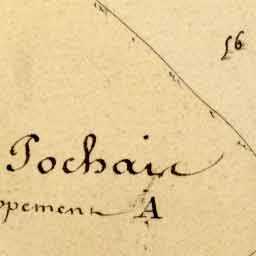 56
Pochair
ppement A